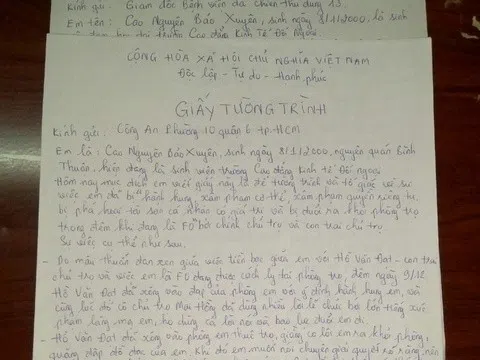 Kính gửi: Giám đốc Bệnh viện dã chiến thu dung 13.
Em tên: Cao Nguyên Bảo Xuyên, sinh ngày 8/1/2000, là sinh
trường Cao đẳng Kinh Tế Đối Ngoại
CỘNG HÒA XÃ HỘI CHỦ NGHĨA VIỆT NAM
Độc lập - Tự do - Hạnh phúc
GIẤY TƯỜNG TRÌNH
Kính gửi: Công An Phường 10 quận 6 tp.HCM
Em là: Cao Nguyên Bảo Xuyên, sinh ngày 8/1/2000, nguyên quán Bình
Thuận, hiện đang là sinh viên trường Cao đẳng Kinh tế Đối ngoại
Hôm nay mục đích em viết giấy này là để tường trình và tố giác về sự
việc em đã bị hành hung, xâm phạm cơ thể, xâm phạm quyền riêng tư,
bị phá hoại tài sản cá nhân có giá trị và bị đuổi ra khỏi phòng trọ
trong đêm khi đang là F0 bởi chính chủ trọ và con trai chủ trọ.
Sự việc cụ thể như sau.
- Do mâu thuẫn đan xen giữa việc tiền bạc giữa em với Hồ Văn Đạt - con trai
chủ trọ và việc em là F0 đang được cách ly tại phòng trọ, đêm ngày 9/12
Hồ Văn Đạt đã xông vào đạp cửa phòng em với ý định hành hung em, với
cùng lúc đó cô chủ trọ Mai Hồng đã dùng nhiều lời lẽ chửi bới lớn tiếng xúc
phạm lăng mạ em, họ dùng cả lời nói và bạo lực đuổi em đi.
- Hồ Văn Đạt đã xông vào phòng em thuê trọ, giằng co lôi em ra khỏi phòng,
quăng đập đồ đạc của em. Khi đó em muốn nói chuyện giải quyết rõ ràng nên